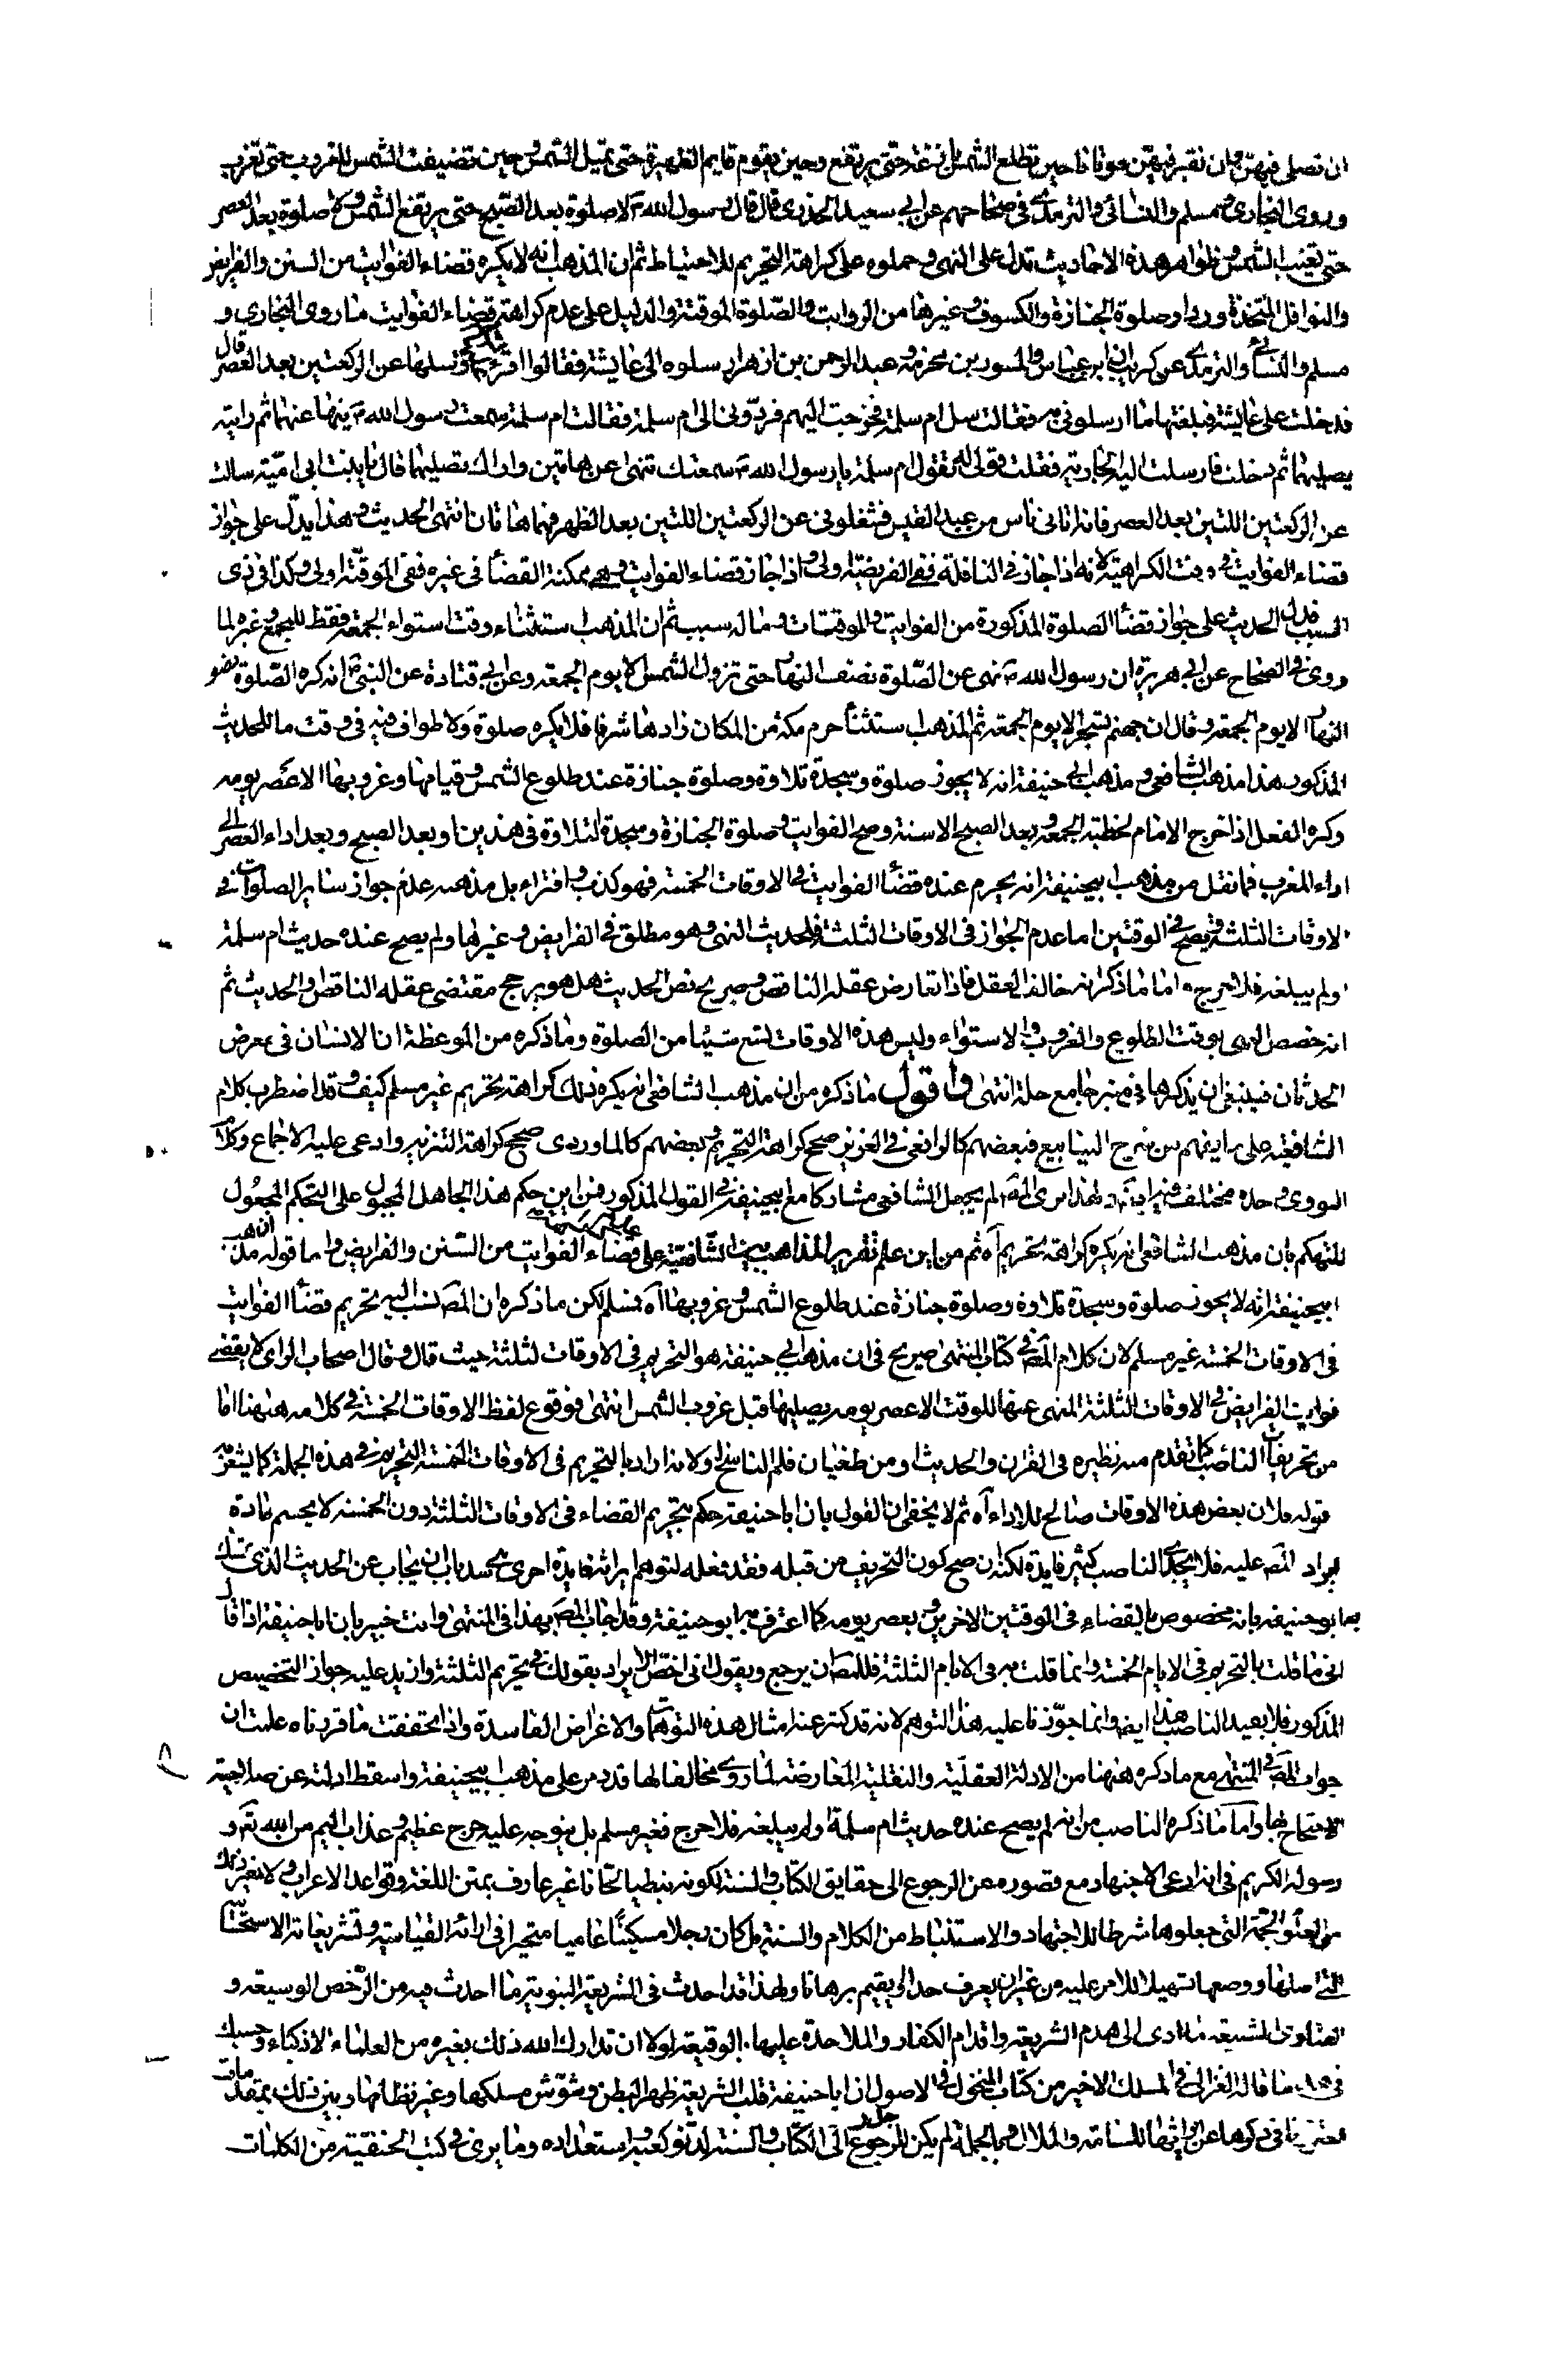 ان نصلى فيهن وان نقبر فيهن موتانا حين تطلع الشمس بازغة حتى يرتفع وحين يقوم قايم الظهيرة حتى تميل الشمس وحين تضيفت الشمس للغروب حتى تغرب
وروى البخارى ومسلم والنسائى والترمذى فى صحاحهم عن ابى سعيد الخدرى قال قال رسول الله ص لا صلوة بعد الصبح حتى يرتفع الشمس ولا صلوة بعد العصر
حتى تغيب الشمس وظواهر هذه الاحاديث تدل على النهى وحملوه على كراهة التحريم للاحتياط ثم ان المذهب انه لا يكره قضاء الفوايت من السنن والفرايض
والنوافل المتخذة وردا وصلوة الجنازة والكسوف وغيرها من الرواتب والصلوة الموقتة والدليل على عدم كراهة قضاء الفوايت ما روى البخارى و
مسلم والنسائى والترمذى عن كريب ان ابن عباس والمسور بن مخرمة وعبد الرحمن بن ازهر ارسلوه الى عايشة فقالوا اقر عليها وسلها عن الركعتين بعد العصر قال
فدخلت على عايشة فبلغتها ما ارسلونى به فقالت سل ام سلمة فخرجت اليهم فردونى الى ام سلمة فقالت ام سلمة سمعت رسول الله ص ينها عنهما ثم رايته
يصليهما ثم دخلت فارسلت اليه الجارية فقلت قولى له تقول ام سلمة يا رسول الله ص سمعتك تنهى عن هاتين واراك تصليهما قال يا بنت ابى امية سالت
عن الركعتين اللتين بعد العصر فانه اتانى ناس من عبد القيس فشغلونى عن الركعتين اللتين بعد الظهر فهما هاتان انتهى الحديث وهذا يدل على جواز
قضاء الفوايت فى وقت الكراهية لانه اذا جاز فى النافلة ففى الفريضة اولى واذا جاز قضاء الفوايت وهى ممكنة القضأ فى غيره ففى الموقتة اولى وكذا فى ذى
السبب فدل الحديث على جواز قضأ الصلوة المذكورة من الفوايت والموقتات وما له سبب ثم ان المذهب استثناء وقت استواء الجمعة فقط للجمع وغيره لما
روى فى الصحاح عن ابى هريرة ان رسول الله ص نهى عن الصلوة نصف النهار حتى تزول الشمس الا يوم الجمعة وعن ابى قتادة عن النبى ص انه كره الصلوة نصف
النهار الا يوم الجمعة وقال ان جهنم تسجر الا يوم الجمعة ثم المذهب استثنأ حرم مكة من المكان زادها شرفا فلا يكره صلوة ولا طواف فيه فى وقت ما للحديث
المذكور هذا مذهب الشافعى ومذهب ابى حنيفة انه لا يجوز صلوة وسجدة تلاوة وصلوة جنازة عند طلوع الشمس وقيامها وغروبها الا عصر يومه
وكره الفعل اذا خرج الامام لخطبة الجمعة وبعد الصبح الا سنة وصح الفوايت وصلوة الجنازة وسجدة التلاوة فى هذين وبعد الصبح وبعد اداء العصر الى
اداء المغرب فما نقل من مذهب ابيحنيفة انه يحرم عنده قضأ الفوايت فى الاوقات الخمسة فهو كذب وافتراء بل مذهبه عدم جواز ساير الصلوات فى
الاوقات الثلثة ويصح فى الوقتين اما عدم الجواز فى الاوقات الثلثة فلحديث النهى وهو مطلق فى الفرايض وغيرها ولم يصح عنده حديث ام سلمة
او لم يبلغه فلا حرج واما ما ذكر انه خالف العقل فاذا تعارض عقله الناقص وصريح نص الحديث هل هو يرجح مقتضى عقله الناقص والحديث ثم
انه خصص النهى بوقت الطلوع والغروب والاستواء وليس هذه الاوقات لتسع شيئا من الصلوة وما ذكره من الموعظة ان الانسان فى معرض
الحدثان فينبغى ان يذكرها فى منبر جامع حلة انتهى واقول ما ذكره من ان مذهب الشافعى انه يكره ذلك كراهة تحريم غير مسلم كيف وقد اضطرب كلام
الشافعية على ما يفهم من شرح الينابيع فبعضهم كالرافعى فى العزيز صحح كراهة التحريم وبعضهم كالماوردى صحح كراهة التنزيه وادعى عليه الاجماع وكلام
النووى وحده مختلف فيه ولهذا ترى المص لم يجعل الشافعى مشاركا مع ابيحنيفة فى القول المذكور فمن اين حكم هذا الجاهل المجبول على التحكم المجعول
للتهكم بان مذهب الشافعى انه يكره كراهة تحريم آه ثم من اين علم تقرير المذاهب حيث الشافعية على قضاء الفوايت من السنن والفرايض واما قوله ان مذهب
ابيحنيفة انه لا يجوز صلوة وسجدة تلاوة وصلوة جنازة عند طلوع الشمس وغروبها آه فمسلم لكن ما ذكره ان المص نسب اليه تحريم قضأ الفوايت
فى الاوقات الخمسة غير مسلم لان كلام المص فى كتاب المنتهى صريح فى ان مذهب ابى حنيفة هو التحريم فى الاوقات الثلثة حيث قال وقال اصحاب الراى لا يقضى
فوايت الفرايض فى الاوقات الثلثة المنهى عنها للوقت الا عصر يومه يصليها قبل غروب الشمس انتهى فوقوع لفظ الاوقات الخمسة فى كلامه ههنا اما
من تحريفات الناصب كما تقدم منه نظيره فى القران والحديث او من طغيان قلم الناسخ او لانه اراد بالتحريم فى الاوقات الخمسة التحريم فى هذه الجملة كما يشعر به
قوله فلان بعض هذه الاوقات صالح للاداء آه ثم لا يخفى ان القول بان ابا حنيفة حكم بتحريم القضاء فى الاوقات الثلثة دون الخمسة لا يحسم مادة
ايراد المص عليه فلا يجدى الناصب كثير فايدة لكنه ان صح كون التحريف من قبله فقد فعله لتوهم ايراثه فايدة اخرى سد باب ان يجاب عن الحديث الذى تمسك
بها ابو حنيفة بانه مخصوص بالقضاء فى الوقتين الاخرين وبعصر يومه كما اعترف به ابو حنيفة وقد اجاب المص بهذا فى المنتهى وانت خبير بان ابا حنيفة اذا قال
انى ما قلت بالتحريم فى الايام الخمسة وانما قلت به فى الايام الثلثة فللمص ان يرجع ويقول انى اخص الايراد بقولك فى تحريم الثلثة وازيد عليه جواز التخصيص
المذكور فلا يفيد الناصب هذا ايضا وانما جوزنا عليه هذا التوهم لانه قد كثر عنه امثال هذه التوهمات والاغراض الفاسدة واذا تحققت ما قررناه علمت ان
جواب المص فى المنتهى مع ما ذكره ههنا من الادلة العقلية والنقلية المعارضة لما روى مخالفا لها قد دمر على مذهب ابيحنيفة واسقط ادلته عن صلاحية
الاحتجاج بها واما ما ذكره الناصب من انه لم يصح عنده حديث ام سلمة او لم يبلغه فلا حرج فغير مسلم بل يتوجه عليه حرج عظيم وعذاب اليم من الله تع و
رسوله الكريم فى انه ادعى الاجتهاد مع قصوره عن الرجوع الى حقايق الكتاب والسنة لكونه نبطيا لحانا غير عارف بمتن اللغة وقواعد الاعراب ولا بغير ذلك
من العلوم الجمة التى جعلوها شرطا للاجتهاد والاستنباط من الكلام والسنة بل كان رجلا مسكينا عاميا متحيرا فى ارائه القياسية وتشريعاته الاستحسانية
التى اصلها ووضعها تسهيلا للامر عليه من غير ان يعرف حدا او يقيم برهانا ولهذا قد احدث فى الشريعة النبوية ما احدث فيه من الرخص الوسيعة و
الفتاوى الشنيعة ما ادى الى هدم الشريعة واقدام الكفار والملاحدة عليها بالوقيعة لولا ان تدارك الله ذلك بغيره من العلماء الاذكياء وحسبك
فى ذلك ما قاله الغزالى فى المسلك الاخير من كتاب المنخول فى الاصول ان ابا حنيفة قلب الشريعة ظهرا لبطن وشوش مسلكها وغير نظامها وبين ذلك بمقدمات
فى ذكرها عن ايراثها للسامة والملال وبالجملة لم يكن للرجوع الى الكتاب والسنة واستعداده وما يرى فى كتب الحنفية من الكلمات